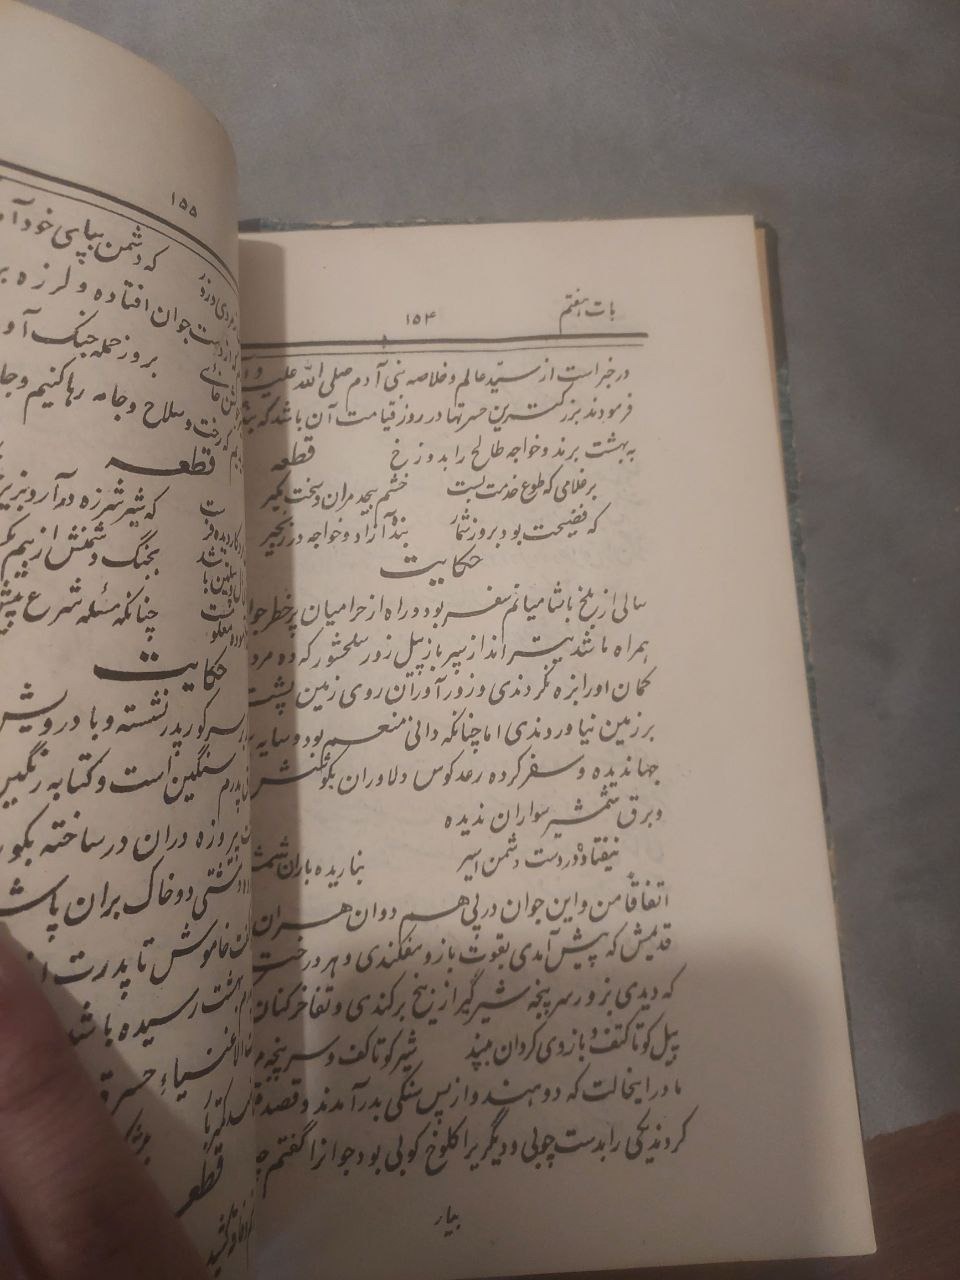 باب هفتم
۱۵۴
در خبر است از سیّد عالم و خلاصه بنی آدم صلی الله علیه و
فرمودند بزرگترین حسرتها در روز قیامت آن باشد که
به بهشت برند و خواجه طالح را بدوزخ قطعه
بر غلامی که طوع خدمت تست خشم بیحد مران و سخت مگیر
که فضیحت بود بروز شمار بندهٔ آزاد و خواجه در زنجیر
حکایت
سالی از بلخ بامیانم سفر بود و راه از حرامیان پر خطر جوا
همراه ما شد سپر باز پیل زور سلحشور که ده مرد
کمان او را بزه نکردندی و زورآوران روی زمین پشت
بر زمین نیاوردندی اما چنانکه دانی متنعم بود و سایه
جهاندیده و سفر کرده رعد کوس دلاوران بگوشش
و برق شمشیر سواران ندیده
نیفتاده در دست دشمن اسیر بناریده باران
اتفاقاً من و این جوان در پی هم دوان هر آن
قدیمش که پیش آمدی بقوت بازو بیفکندی و هر درخت
که دیدی بزور سرپنجه شیرگیر از بیخ برکندی و تفاخر کنان
پیل کو تا کتف و بازوی گردان بیند شیر کو تا کف و سرپنجه
ما در این حالت که دو هندو از پس سنگی بدر آمدند و قصد
کردند یکی را بدست چوبی و دیگریرا کلوخ کوبی بود جوانرا گفتم
بیار
۱۵۵
که دشمن بپای خود آ
دست جوان افتاده و لرزه بر
بروز حمله جنگ آو
که رخت و سلاح و جامه رها کنیم و
قطعه
که شیر شرزه در آرد بزیر
بجنگ دشمنش از بیم
چنانکه مسئله شرع پیش
حکایت
سر گور پدر نشسته و با درویش
پدرم سنگین است و کتابه رنگین
پیروزه در آن ساخته بگور
خشتی دو خاک بران پاش
گفت خاموش تا پدرت از
بهشت رسیده باشد
قطعه